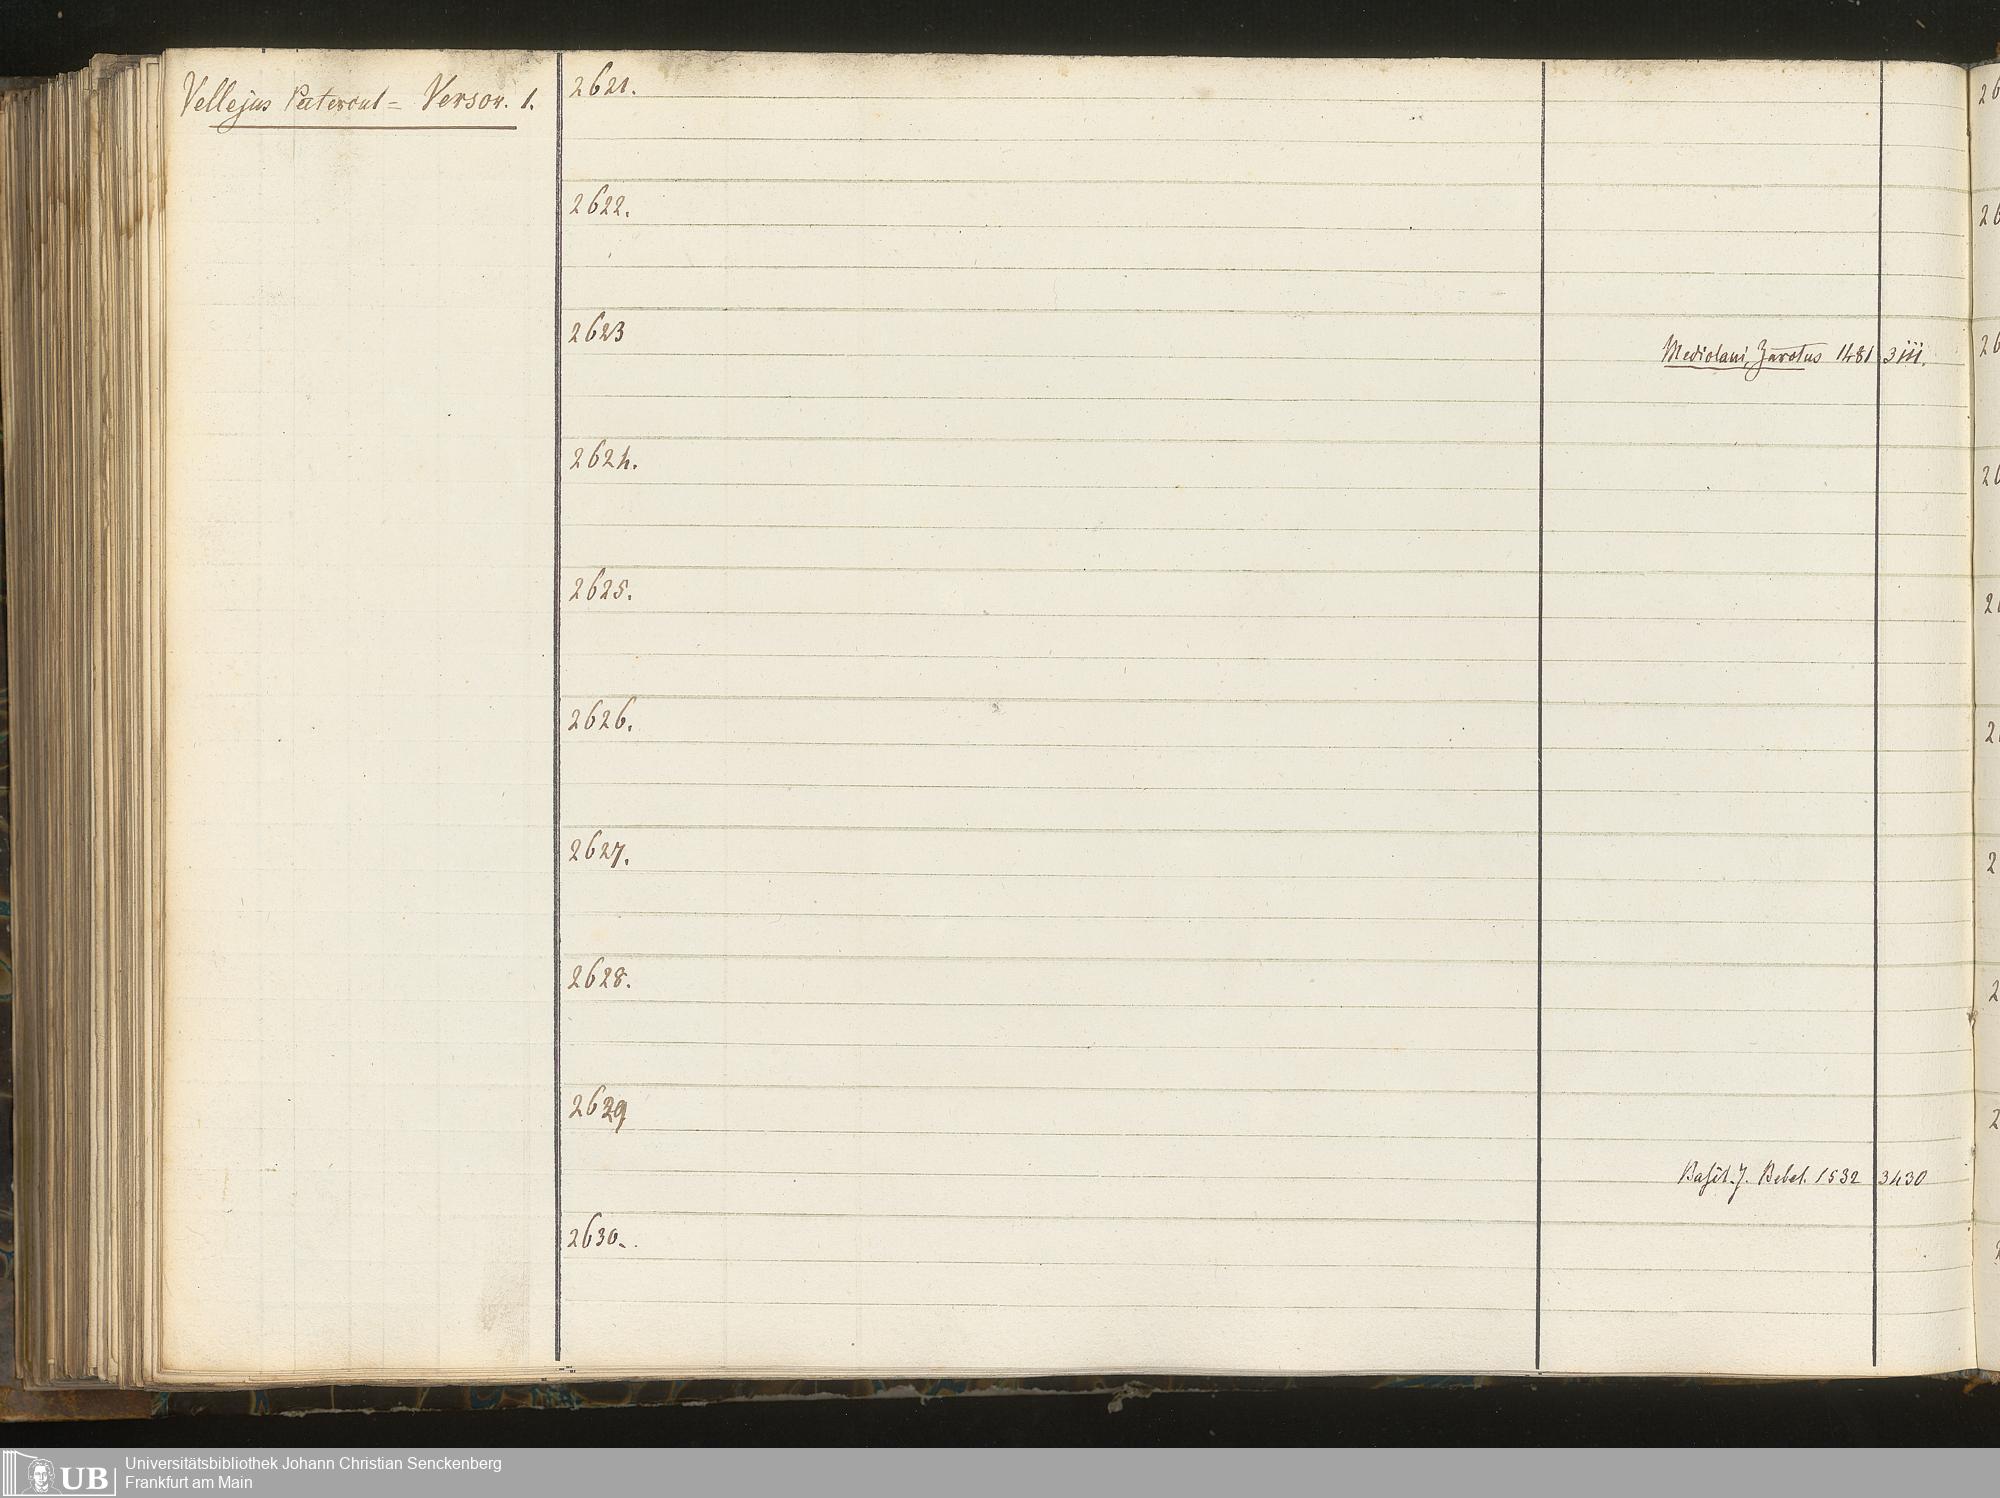 Vellejus Patercul= Versor. 1.
2621.
2622.
2623
Mediolani, Zarotus 1481 3111.
2624.
2625.
2626.
2627.
2628.
2629
Basil. J. Bebel. 1532 3430
2630.
Universitätsbibliothek Johann Christian Senckenberg
Frankfurt am Main
UB